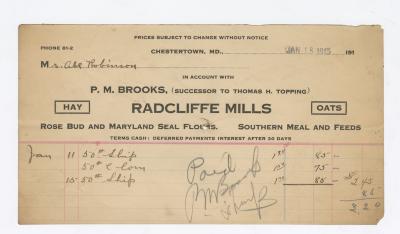 PRICES SUBJECT TO CHANGE WITHOUT NOTICE
PHONE 81-2
CHESTERTOWN, MD., JAN 18 1915 191
Mrs. Abe Robinson
IN ACCOUNT WITH
P. M. BROOKS, (SUCCESSOR TO THOMAS H. TOPPING)
HAY RADCLIFFE MILLS OATS
ROSE BUD AND MARYLAND SEAL FLOURS. SOUTHERN MEAL AND FEEDS
TERMS CASH: DEFERRED PAYMENTS INTEREST AFTER 30 DAYS
Jan 11 50# Ship 85
50# C Corn 75
15 50# Ship 85
2 45
Paid
PM Brooks